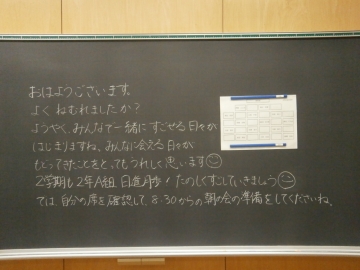 おはようございます。
よくねむれましたか?
ようやく、みんなで一緒にすごせる日々が
はじまりますね。みんなに会える日々が
もどってきたことを、とってもうれしく思います
2学期も2年A組 日進月歩・たのしくすごしていきましょう
では、自分の席を確認して、8:30からの朝の会の準備をしてくださいね。